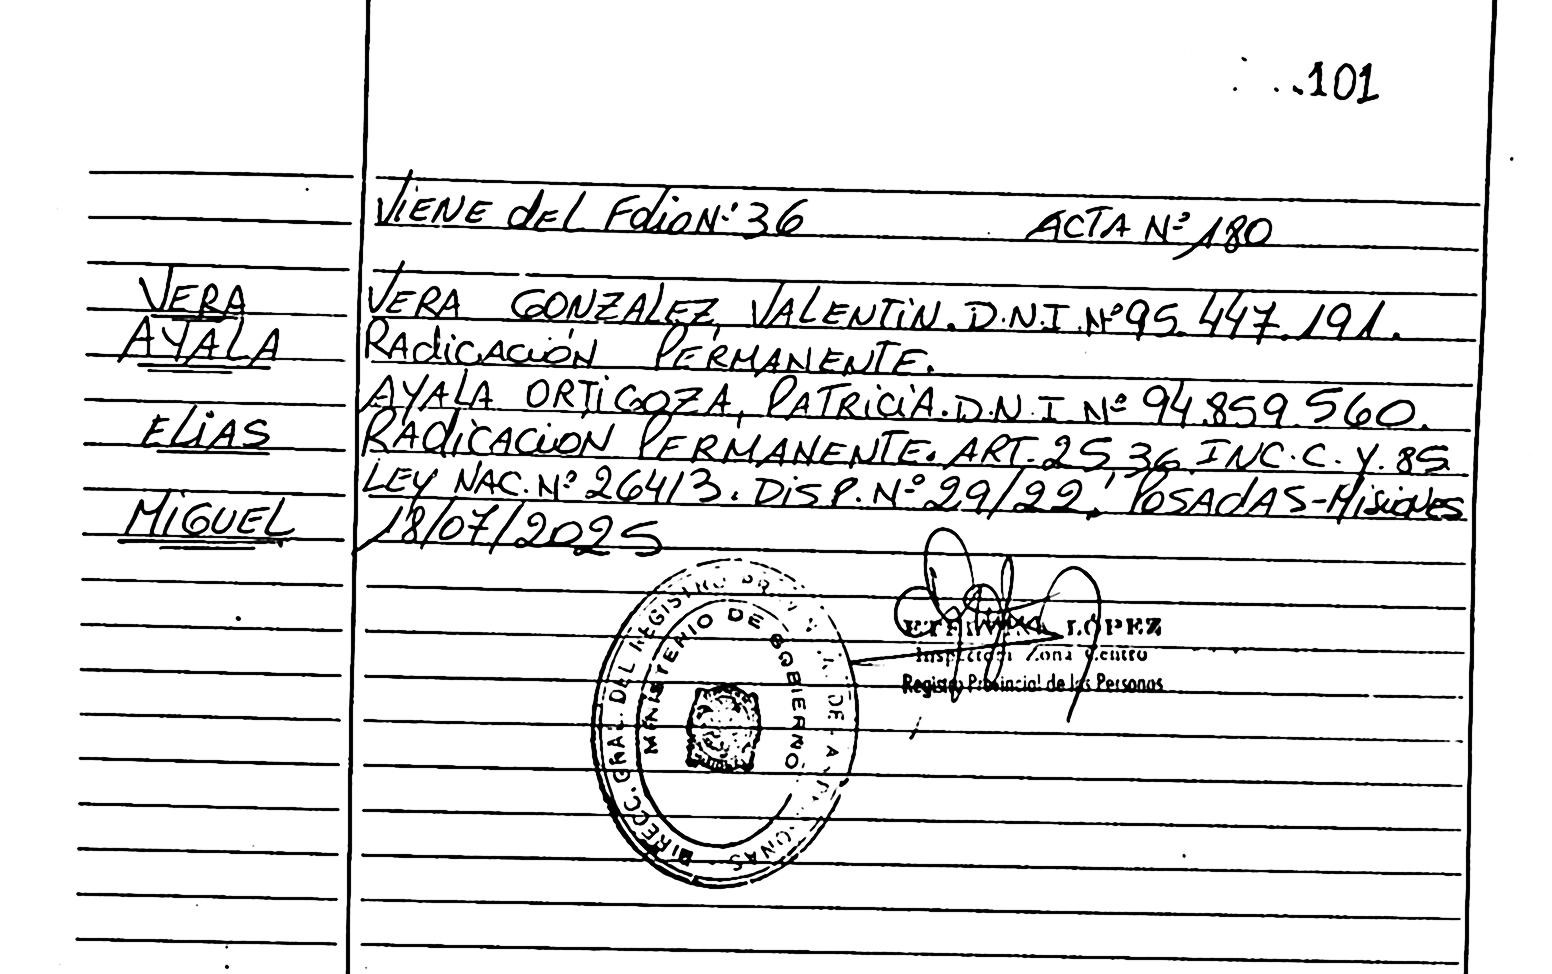 101
VIENE del Folio Nº 36 ACTA Nº 180
VERA
AYALA
ELIAS
MIGUEL
VERA GONZALEZ, VALENTIN. D.N.I. Nº 95.447.191.
RAdicACIÓN PERMANENTE.
AYALA ORTIGOZA, PATRICIA. D.N.I Nº 94.859.560.
RAdicACIÓN PERMANENTE. ART. 25, 36 INC. C. Y. 85
LEY NAC. Nº 26413. DISP. Nº 29/22. POSADAS-MISIONES
18/07/2025
DIRECC. GRAL. DEL REGISTRO DE
MINISTERIO DE GOBIERNO
LOPEZ
Inspectora Zona Centro
Registro Provincial de las Personas